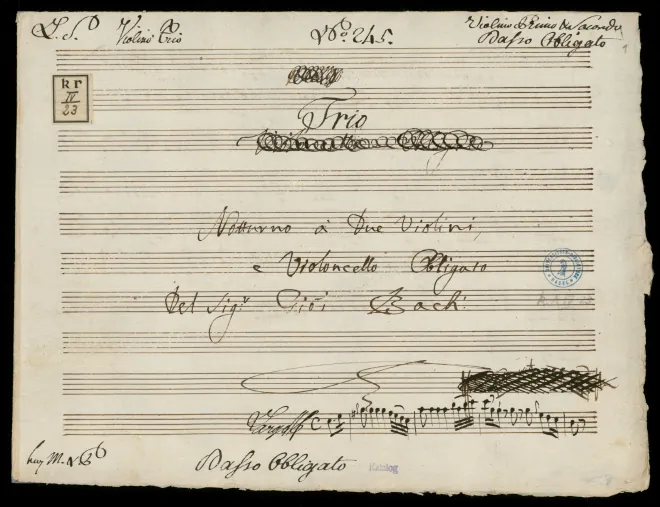 Violino Trio
No. 245.
Violino Primo è Secondo
Basso Obligato
1
kr
IV
23
Trio
Notturno à Due Violini,
e Violoncello Obligato
Del Sigr. Gioi Bach:
Largo
Basso Obligato
Katalog